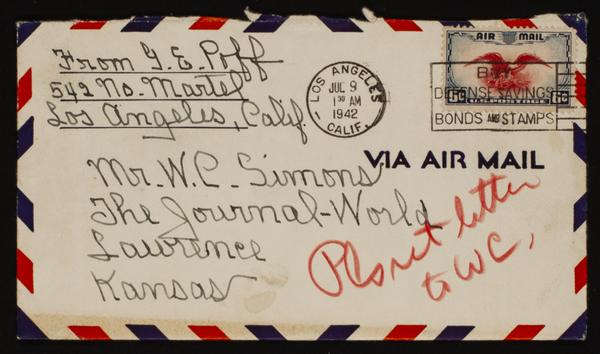 From G. E. Poff
542 No. Martel
Los Angeles, Calif.
LOS ANGELES
JUL 9
1 30 AM
1942
CALIF.
AIR MAIL
6¢ 6¢
BUY
DEFENSE SAVINGS
BONDS AND STAMPS
VIA AIR MAIL
Mr. W. C. Simons
The Journal-World
Lawrence
Kansas
Pls ret letter
to WC,